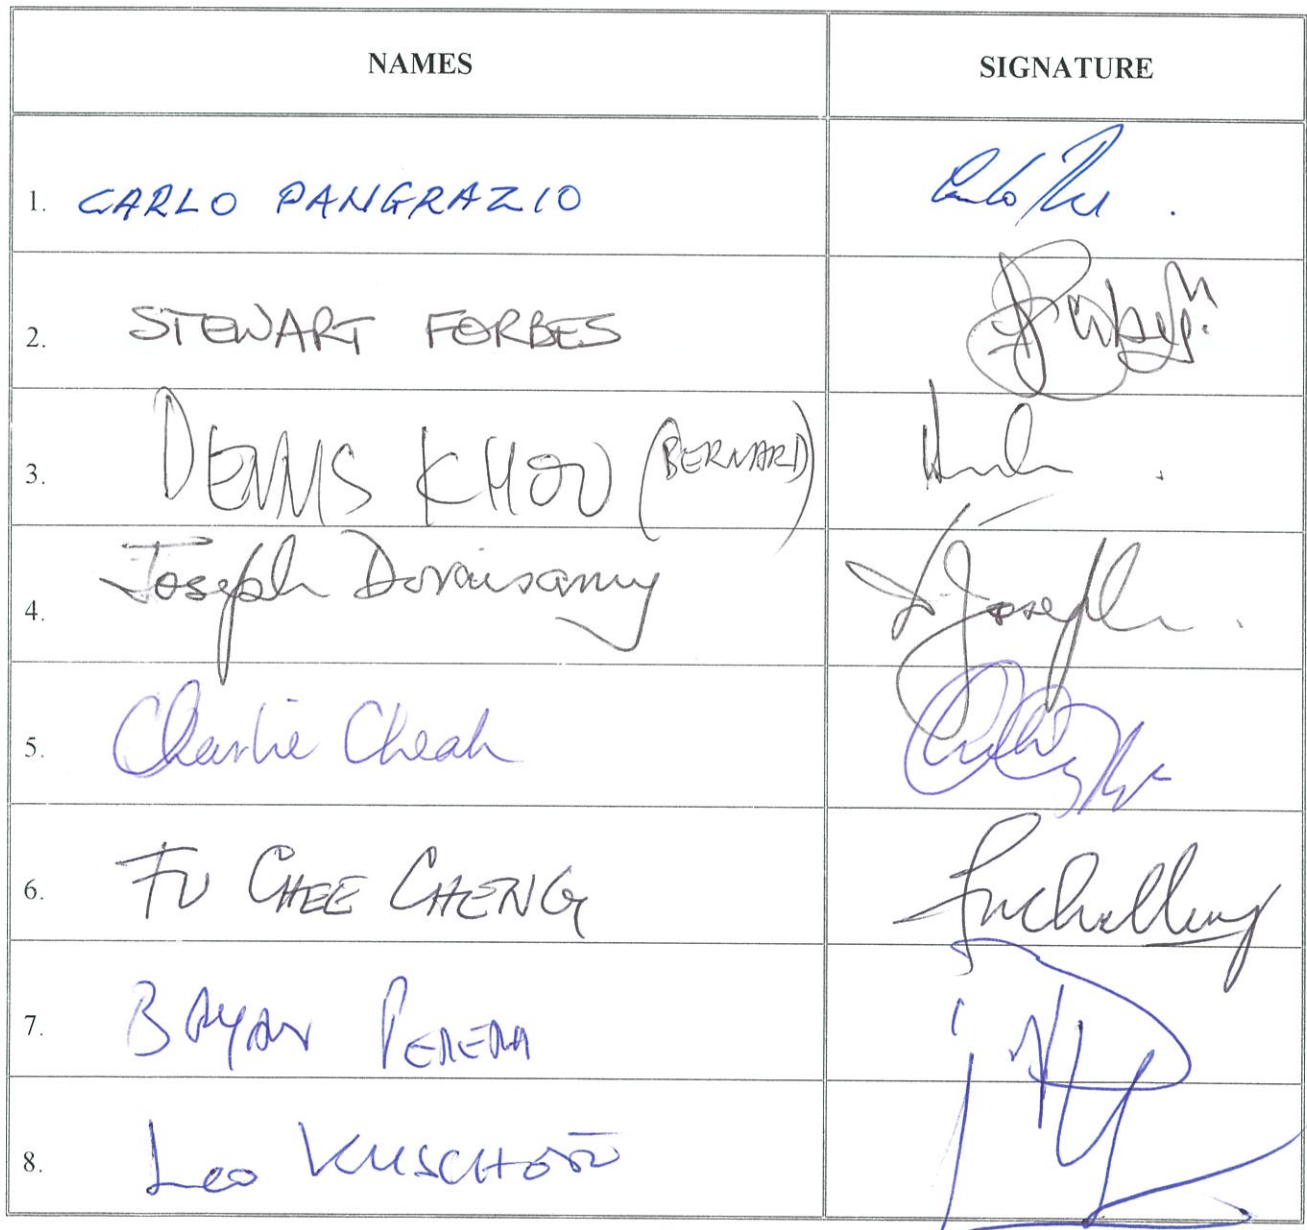 NAMES SIGNATURE
1. CARLO PANGRAZIO
2. STEWART FORBES
3. DENNIS KHOO (BERNARD)
4. Joseph Doraisamy Joseph
5. Charlie Cheah
6. FU CHEE CHENG
7. BRYAN PERERA
8. LEO